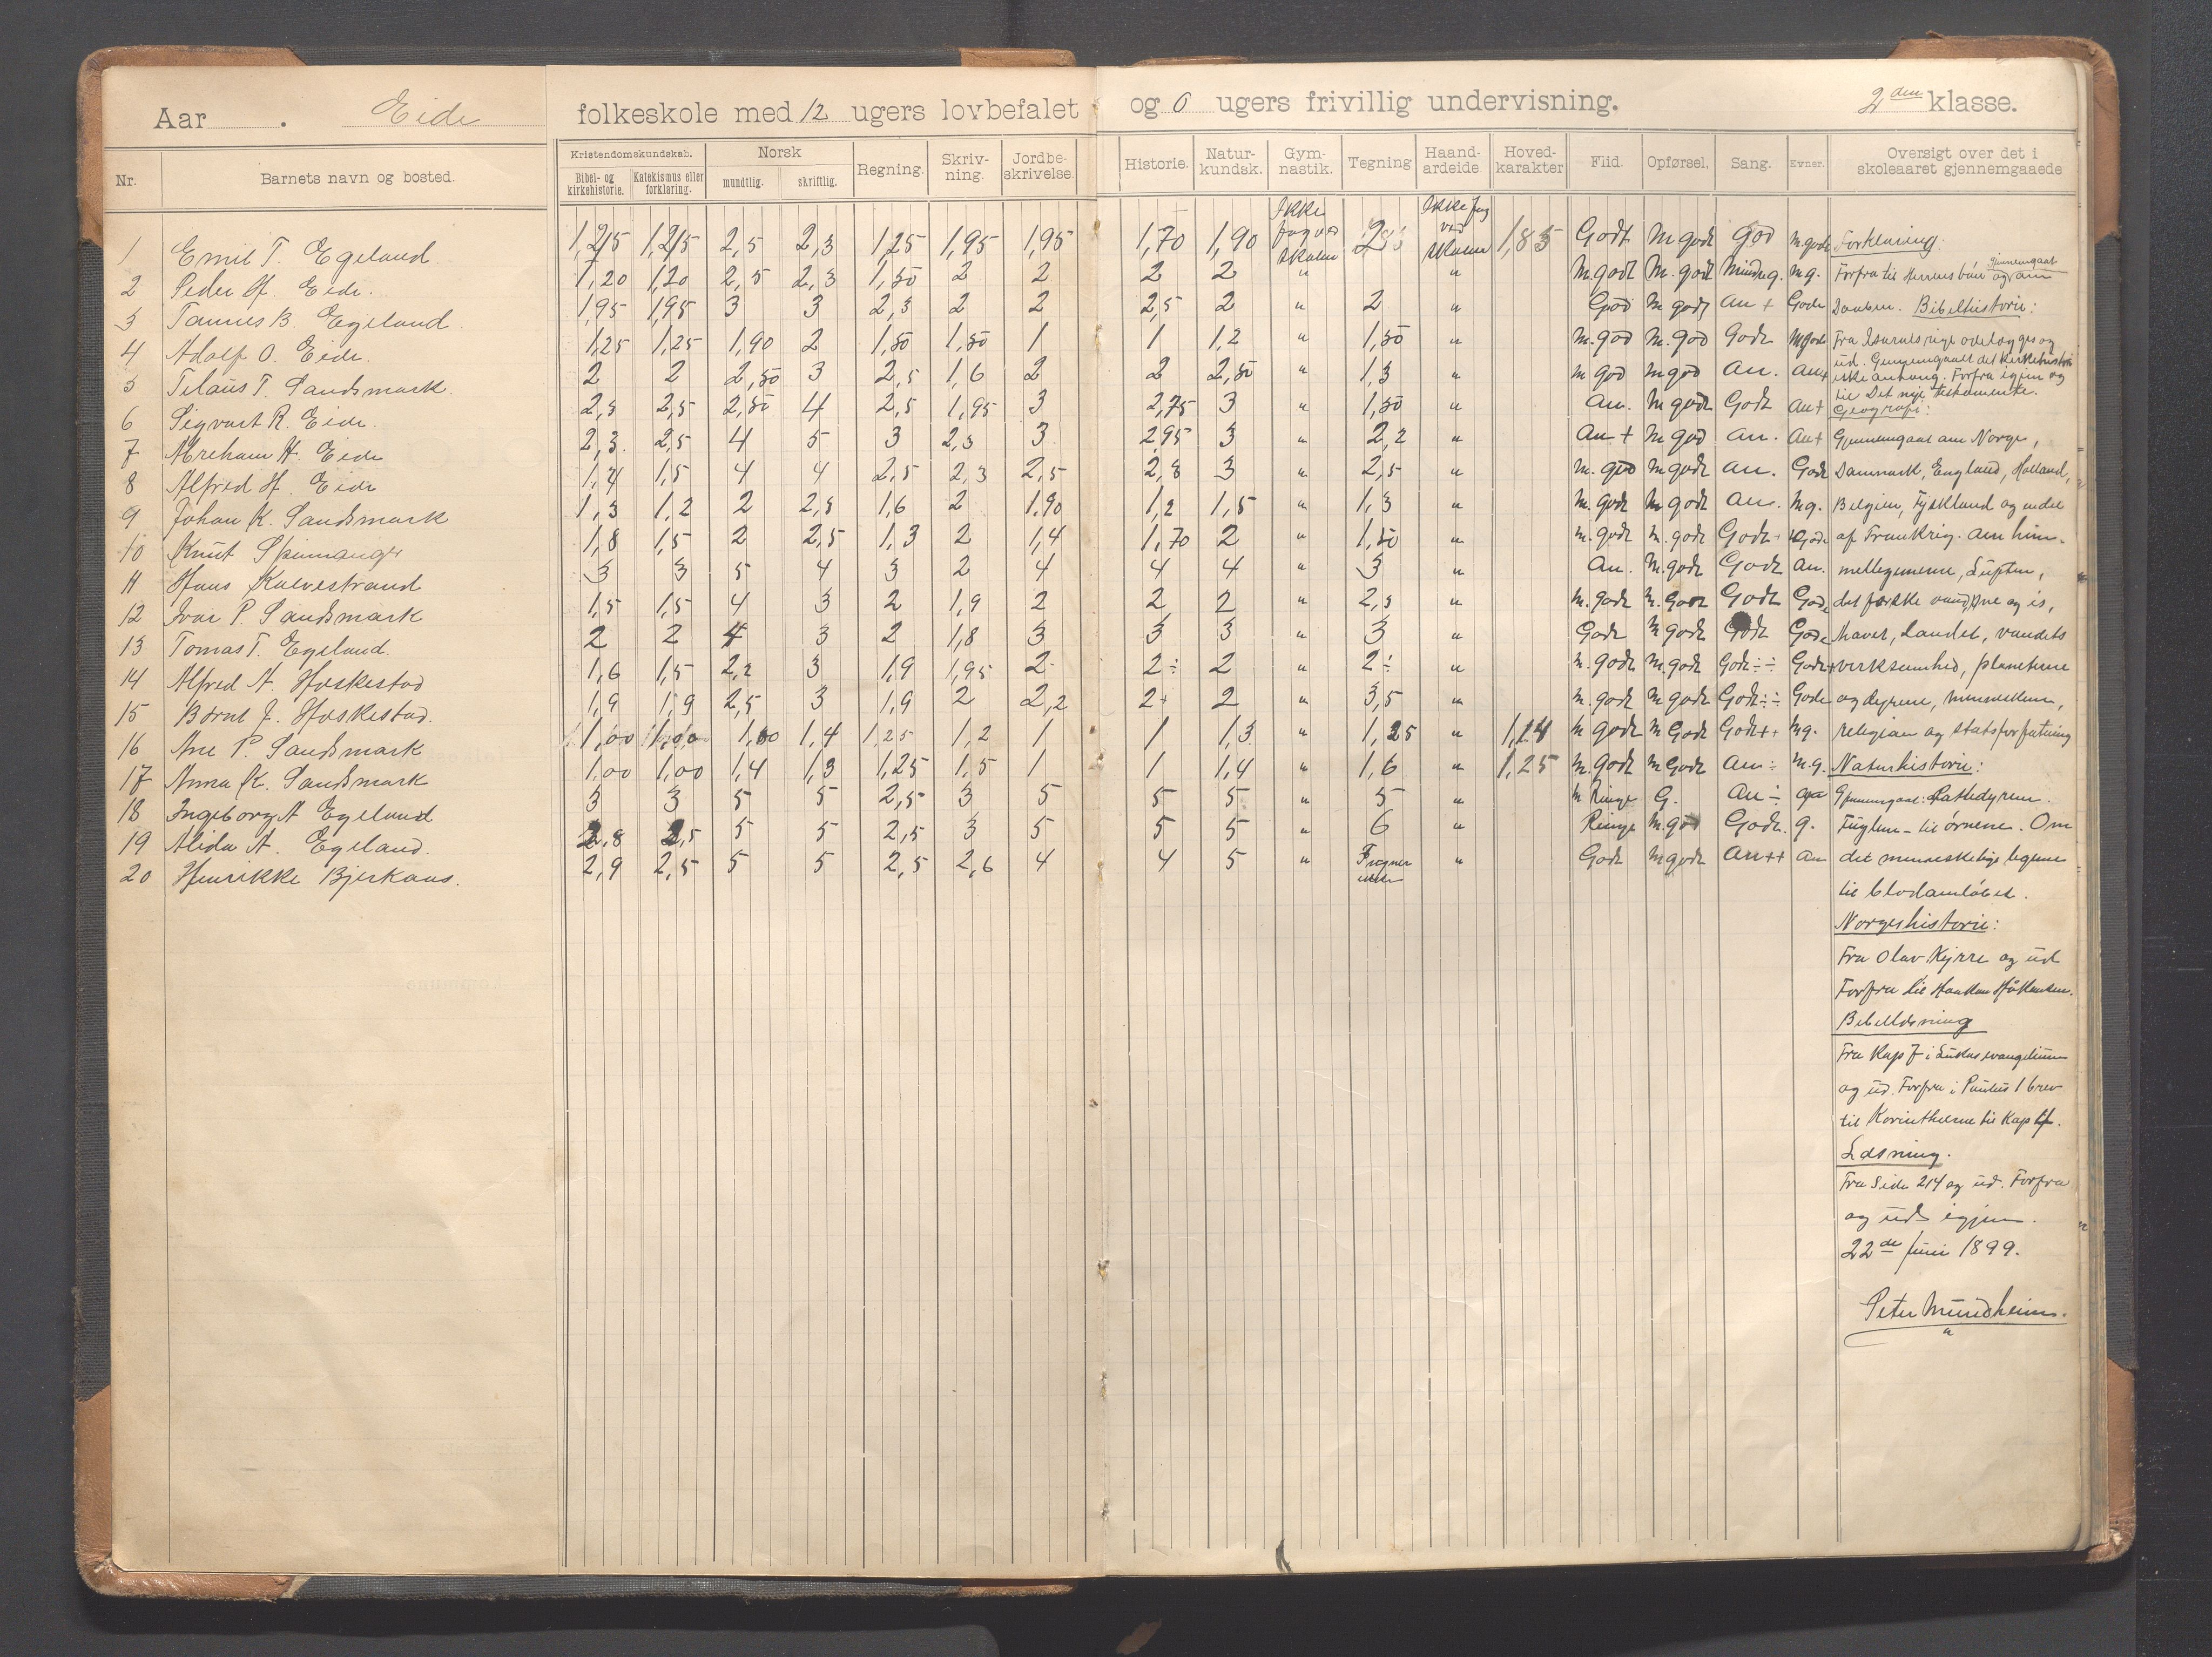 Aar . Eide folkeskole med 12 ugers lovbefalet og 0 ugers frivillig undervisning. 2den klasse.
Nr. Barnets navn og bosted. Kristendomskundskab. Bibel- og kirkehistorie. Katekismus eller forklaring. Norsk mundtlig. skriftlig. Regning. Skriv-ning. Jordbe-skrivelse. Historie. Natur-kundsk. Gym-nastik. Tegning Haand-arbeide. Hoved-karakter Flid. Opførsel. Sang. Evner. Oversigt over det i skoleaaret gjennemgaaede
1 Emil T. Egeland. 1,25 1,25 2,5 2,3 1,25 1,95 1,95 1,70 1,90 Ikke fag ved skolen Ikke fag ved skolen 1,85 Godt M godt god M.godt Forklaring:
2 Peder H. Eide. 1,20 1,20 2,5 2,3 1,50 2 2 2 2 " " M.godt M. godt Mindre g. Mg. Forfra til Herrens bøn gjennemgaat og om
3 B. Egeland. 1,95 1,95 3 3 2,3 2 2 2,5 2 " 2 " God M godt An + Godt Daaben. Bibelhistorie:
4 Adolf O. Eide. 1,25 1,25 1,90 2 1,50 1,50 1 1 1,2 " 1,50 " M.god M.god Godt M godt Fra Israels rige ødelægges og
5 T. Sandsmark. 2 2 2,50 3 2,5 1,6 2 2 2,50 " 1,3 " M god M god An. An+ ud. Gjennemgaaet det kirkehistoriske anhang. Forfra igjen og
6 Sigvart R. Eide. 2,5 2,5 2,50 4 2,5 1,95 3 2,75 3 " 1,50 " An. M godt Godt An+ til Det nye testamente. Geografi:
7 Abreham H. Eide 2,3 2,5 4 5 3 2,3 3 2,95 3 " 2,2 " An + M god An. An+ Gjennemgaat om Norge,
8 Alfred H. Eide 1,4 1,5 4 4 2,5 2,3 2,5 2,8 3 " 2,5 " M. god M godt An. Godt Danmark, England, Holland,
9 Johan K. Sandsmark 1,3 1,2 2 2,5 1,6 2 1,90 1,2 1,5 " 1,3 " M. godt M godt An. Mg. Belgien, Tyskland og endel
10 Knut 1,8 1,5 2 2,5 1,3 2 1,4 1,70 2 " 1,50 " M. godt M. godt Godt Godt af Frankrig. Om him-
11 Hans Kalvestrand 3 3 5 4 3 2 4 4 4 " 3 " An. M. godt Godt An. mellegemerne, Luften,
12 Ivar P. Sandsmark 1,5 1,5 4 3 2 1,9 2 2 2 " 2,5 " M. godt M. Godt Godt Godt det færske vand, sne og is,
13 Tomas T. Egeland. 2 2 4 3 2 1,8 3 3 3 " 3 " Godt M godt Godt Godt havet, Landet, vandets
14 Alfred A. Høskestad 1,6 1,5 2,2 3 1,9 1,95 2 2÷ 2 " 2÷ " M. godt M. godt Godt÷÷ Godt+ virksomhed, planterne
15 Bernt J. Høskestad. 1,9 1,9 2,5 3 1,9 2 2,2 2+ 2 " 3,5 " M. godt M godt Godt÷÷ Godt og dyrene, mennesket,
16 Ane P. Sandsmark 1,00 1,00 1,00 1,4 1,25 1,2 1 1 1,3 " 1,25 " 1,14 M godt M Godt Godt++ Mg. religion og statsforfatning
17 Anna K. Sandsmark 1,00 1,00 1,4 1,3 1,25 1,5 1 1 1,4 " 1,6 " 1,25 M. godt M Godt An÷ M.g. Naturhistorie:
18 Ingeborg A Egeland 3 3 5 5 2,5 3 5 5 5 " 5 " M Ringe G. An÷ Gjennemgaat: Pattedyrene.
19 Alida A. Egeland. 2,8 2,5 5 5 2,5 3 5 5 5 " 6 " Ringe M.god Godt. g. Fuglene - til ørnene. Om
20 Henrikke Bjerkaas. 2,9 2,5 5 5 2,5 2,6 4 4 5 " Tegner ikke " Godt M godt An++ An det menneskelige legeme
til blodomløbet.
Norgeshistorie:
Fra Olav Kyrre og ud
Forfra til Haakon Håkonsen.
Bibellæsning
Fra Kap 7 i Lukas evangelium
og ud. Forfra i Paulus 1 brev
til Korintherne til Kap 4.
Læsning.
Fra Side 214 og ud. Forfra
og ud igjen.
22de Juni 1899.
Peter Mundheim.